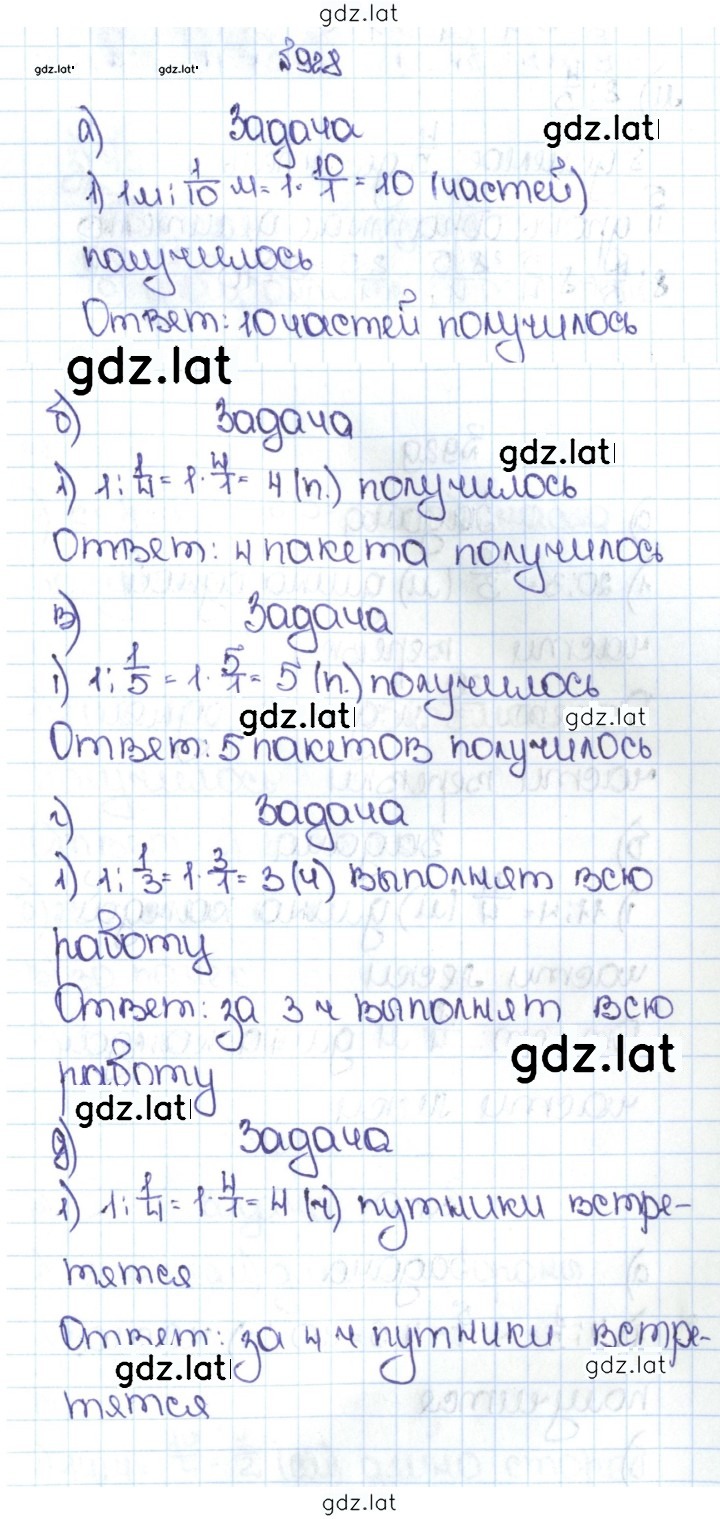 gdz.lat
№928
gdz.lat gdz.lat
а) Задача gdz.lat
1) 1м : 1/10 м = 1 · 10/1 = 10 (частей)
получилось
Ответ: 10 частей получилось
gdz.lat
б) Задача
gdz.lat
1) 1 : 1/4 = 1 · 4/1 = 4 (п.) получилось
Ответ: 4 пакета получилось
в) Задача
1) 1 : 1/5 = 1 · 5/1 = 5 (п.) получилось
gdz.lat gdz.lat
Ответ: 5 пакетов получилось
г) Задача
1) 1 : 1/3 = 1 · 3/1 = 3 (ч) выполнят всю
работу
Ответ: за 3 ч выполнят всю
gdz.lat
работу
gdz.lat
д) Задача
1) 1 : 1/4 = 1 · 4/1 = 4 (ч) путники встре-
тятся
Ответ: за 4 ч путники встре-
gdz.lat gdz.lat
тятся
gdz.lat